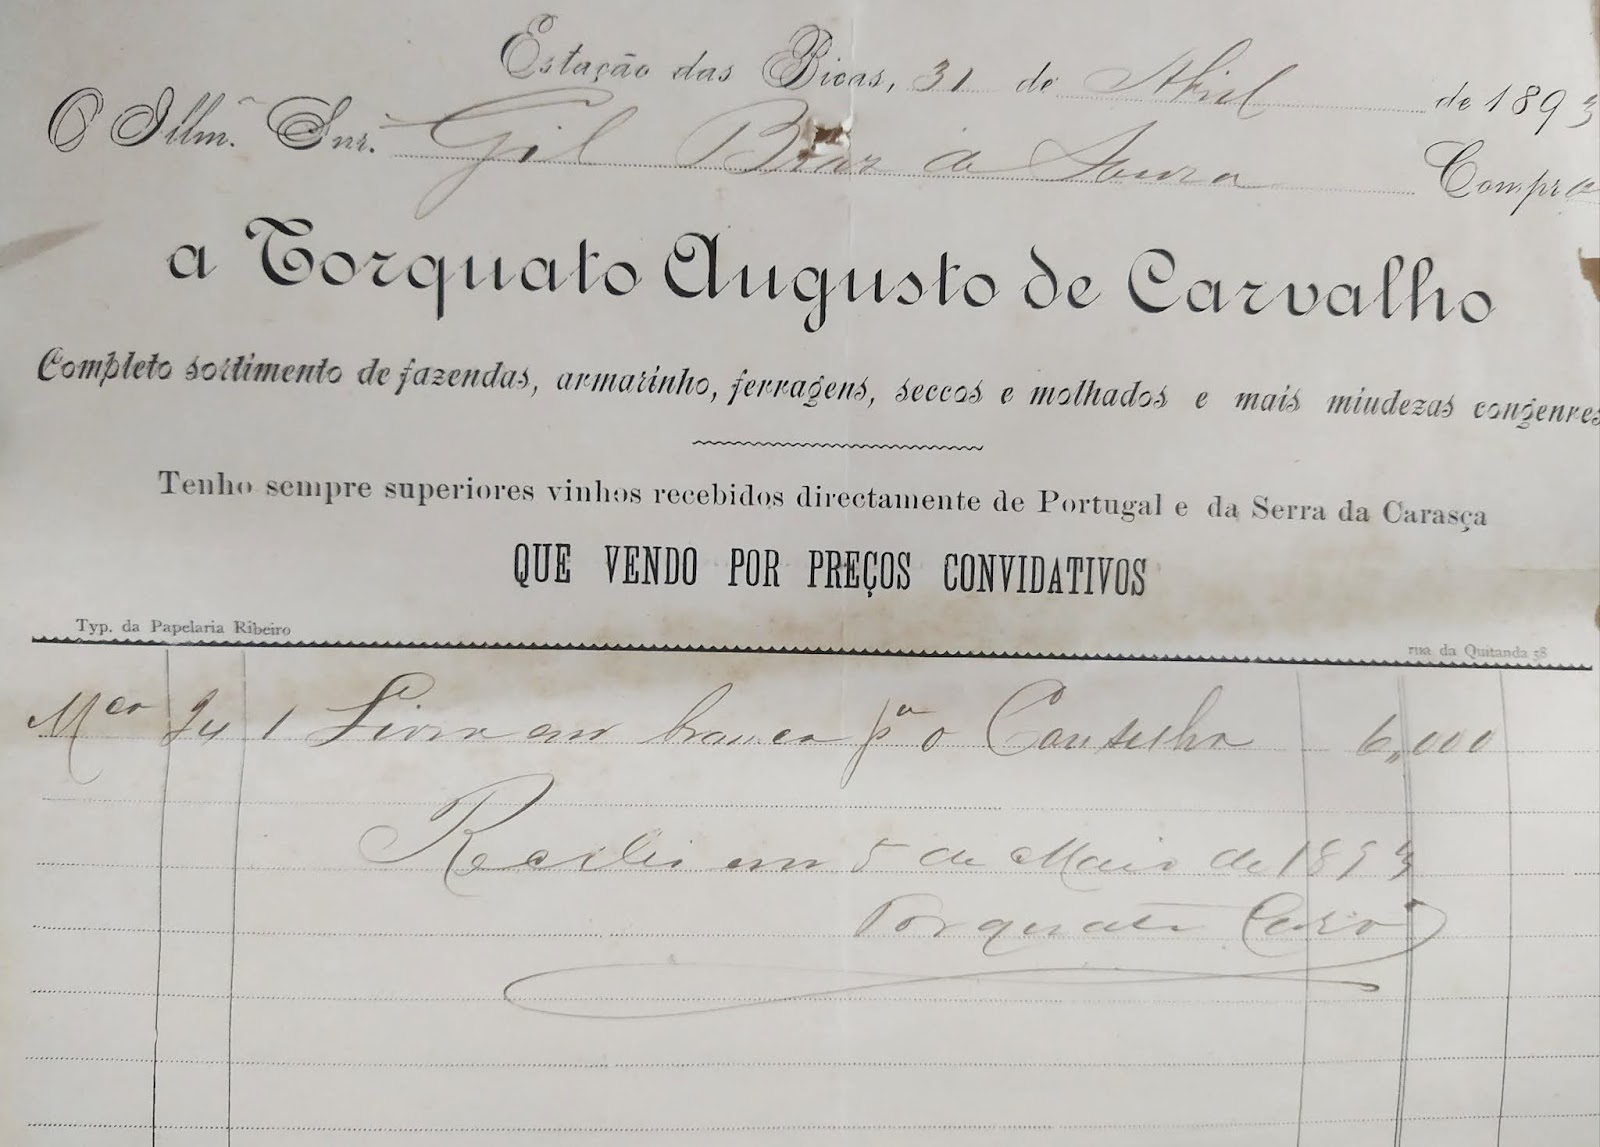 Estação das Bicas, 31 de Abril de 1893
O Illmº. Snr. Gil Braz de Souza Compra
a Torquato Augusto de Carvalho
Completo sortimento de fazendas, armarinho, ferragens, seccos e molhados e mais miudezas congenres
Tenho sempre superiores vinhos recebidos directamente de Portugal e da Serra da Carasça
QUE VENDO POR PREÇOS CONVIDATIVOS
Typ. da Papelaria Ribeiro rua da Quitanda 58
Mço 24 1 Livro em branco pª o Conselho 6,000
Recebi em 5 de Maio de 1893
Torquato